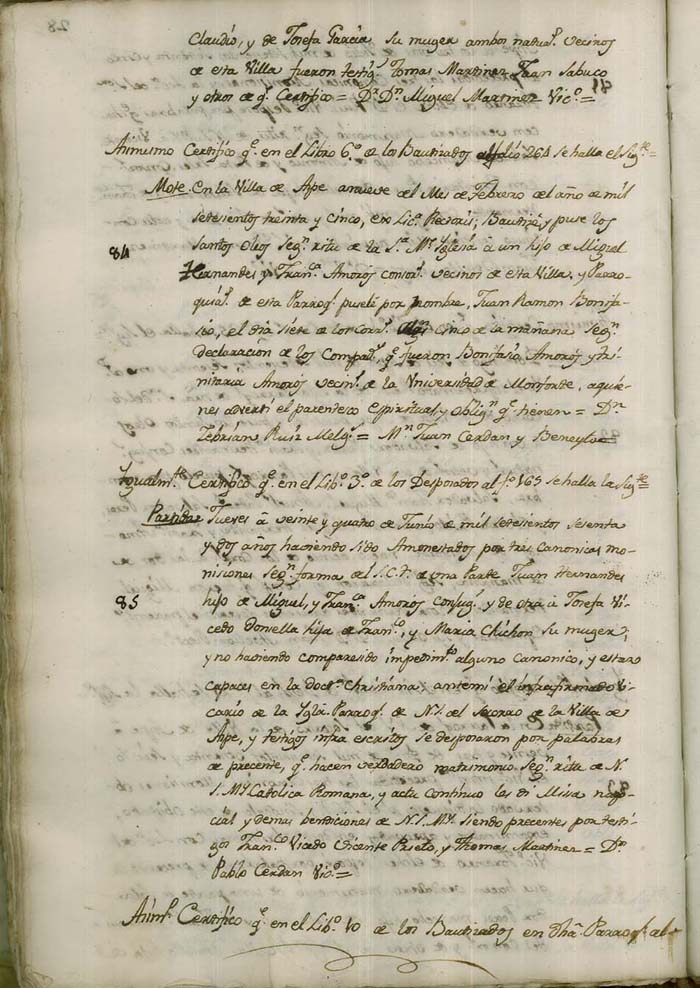 Claudio, y de Josefa Garcia su muger ambos natuas. Vecinos
de esta Villa fueron testigs. Tomas Martinez Fran Sabuco
y otros de q.e Certifico = Dr. Dn. Miguel Martinez Vico. =
Asimismo Certifico q.e en el Libro 6.o de los Bautizados al folio 264 se halla el Sigte. =
84
En la Villa de Aspe a nueve del Mes de Febrero del año de mil
setesientos treinta y cinco, exo Lica. Rectoris; Bautizé, y puse los
Santos Oleos Segn. ritu de la Sta. Me. Yglesia à un hijo de Miguel
Hernandes y Franca. Amorós consors. vecinos de esta Villa, y Parro-
quias. de esta Parroql. pusele por nombre, Juan Ramon Bonifa-
sio, el dia siete de los Corrs. cinco de la mañana segn.
declaracion de los Compads. q.e fueron Bonifasio Amorós y tri-
nitaria Amorós vecins. de la Universidad de Monforde, aquie-
nes advertí el parendesco espiritual, y obligon. q.e tienen = Dn.
Zebrian Ruiz Melgs. = Mn. Juan Cerdan y Beneyto =
Ygualmte. Certifico q.e en el Libo. 3.o de los Desposados al fo. 165 se halla la Sigte. =
85
Partida Jueves à veinte y quatro de Junio de mil setesientos sesenta
y dos años haviendo sido Amonestados por tres canonicas mo-
nisiones Segn. forma del S.C.T. de una Parte Juan Hernandes
hijo de Miguel, y Franca. Amoros consugs. y de otra à Josefa Vi-
cedo Donsella hija de Franco., y Maria Chichon su muger;
y no haviendo comparesido impedimto. alguno canonico, y estar
capaces en la doctra. Christiana; antemi el infrafirmado Vi-
cario de la Ygla. Parroql. de N.S. del Socorro de la Villa de
Aspe, y testigos infra escritos se desposaron por palabras
de precente, q.e hacen verdadero matrimonio Segn. ritu de N.
S. Me. Catolica Romana, y acta continuo les di Missa nup-
cial y demas bendiciones de N.S. Me. siendo precentes por testi-
gos Franco. Vicedo Vicente Prieto, y Thomas Martinez = Dn.
Pablo Cerdan Vico. =
Asimo. Certifico q.e en el Libo. 10 de los Bautizados en Dha. Parroql. al